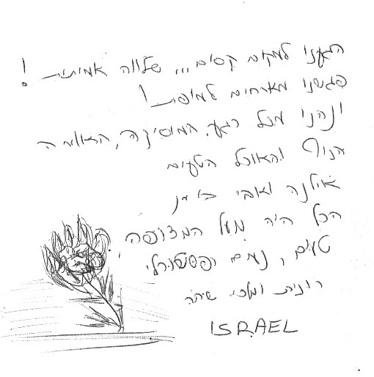 הגענו למקום קסום... שלווה אמיתית!
פגשנו מארחים למופת!
נהנו מכל רגע, המוסיקה, האווירה
הנוף והאוכל הטעים
אילנה ואבי
הכל היה מעל המצופה
טעים, נעים ופסטורלי
רונית ומלכי
ISRAEL